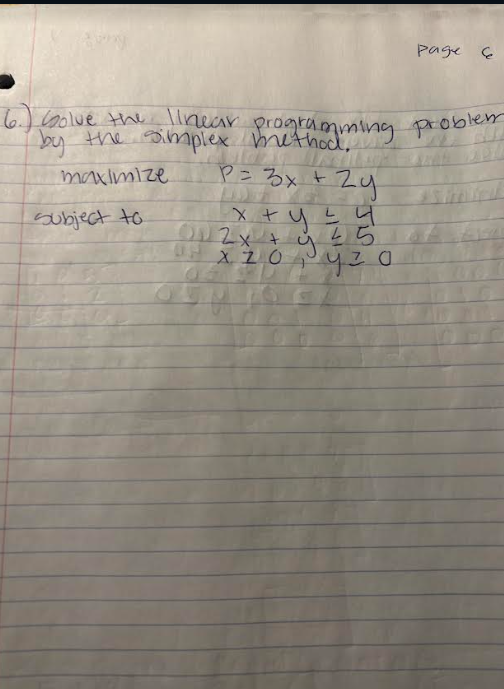 page 6
6.) Solve the linear programming problem
by the simplex method.
maximize P = 3x + 2y
subject to x + y ≤ 4
2x + y ≤ 5
x ≥ 0, y ≥ 0